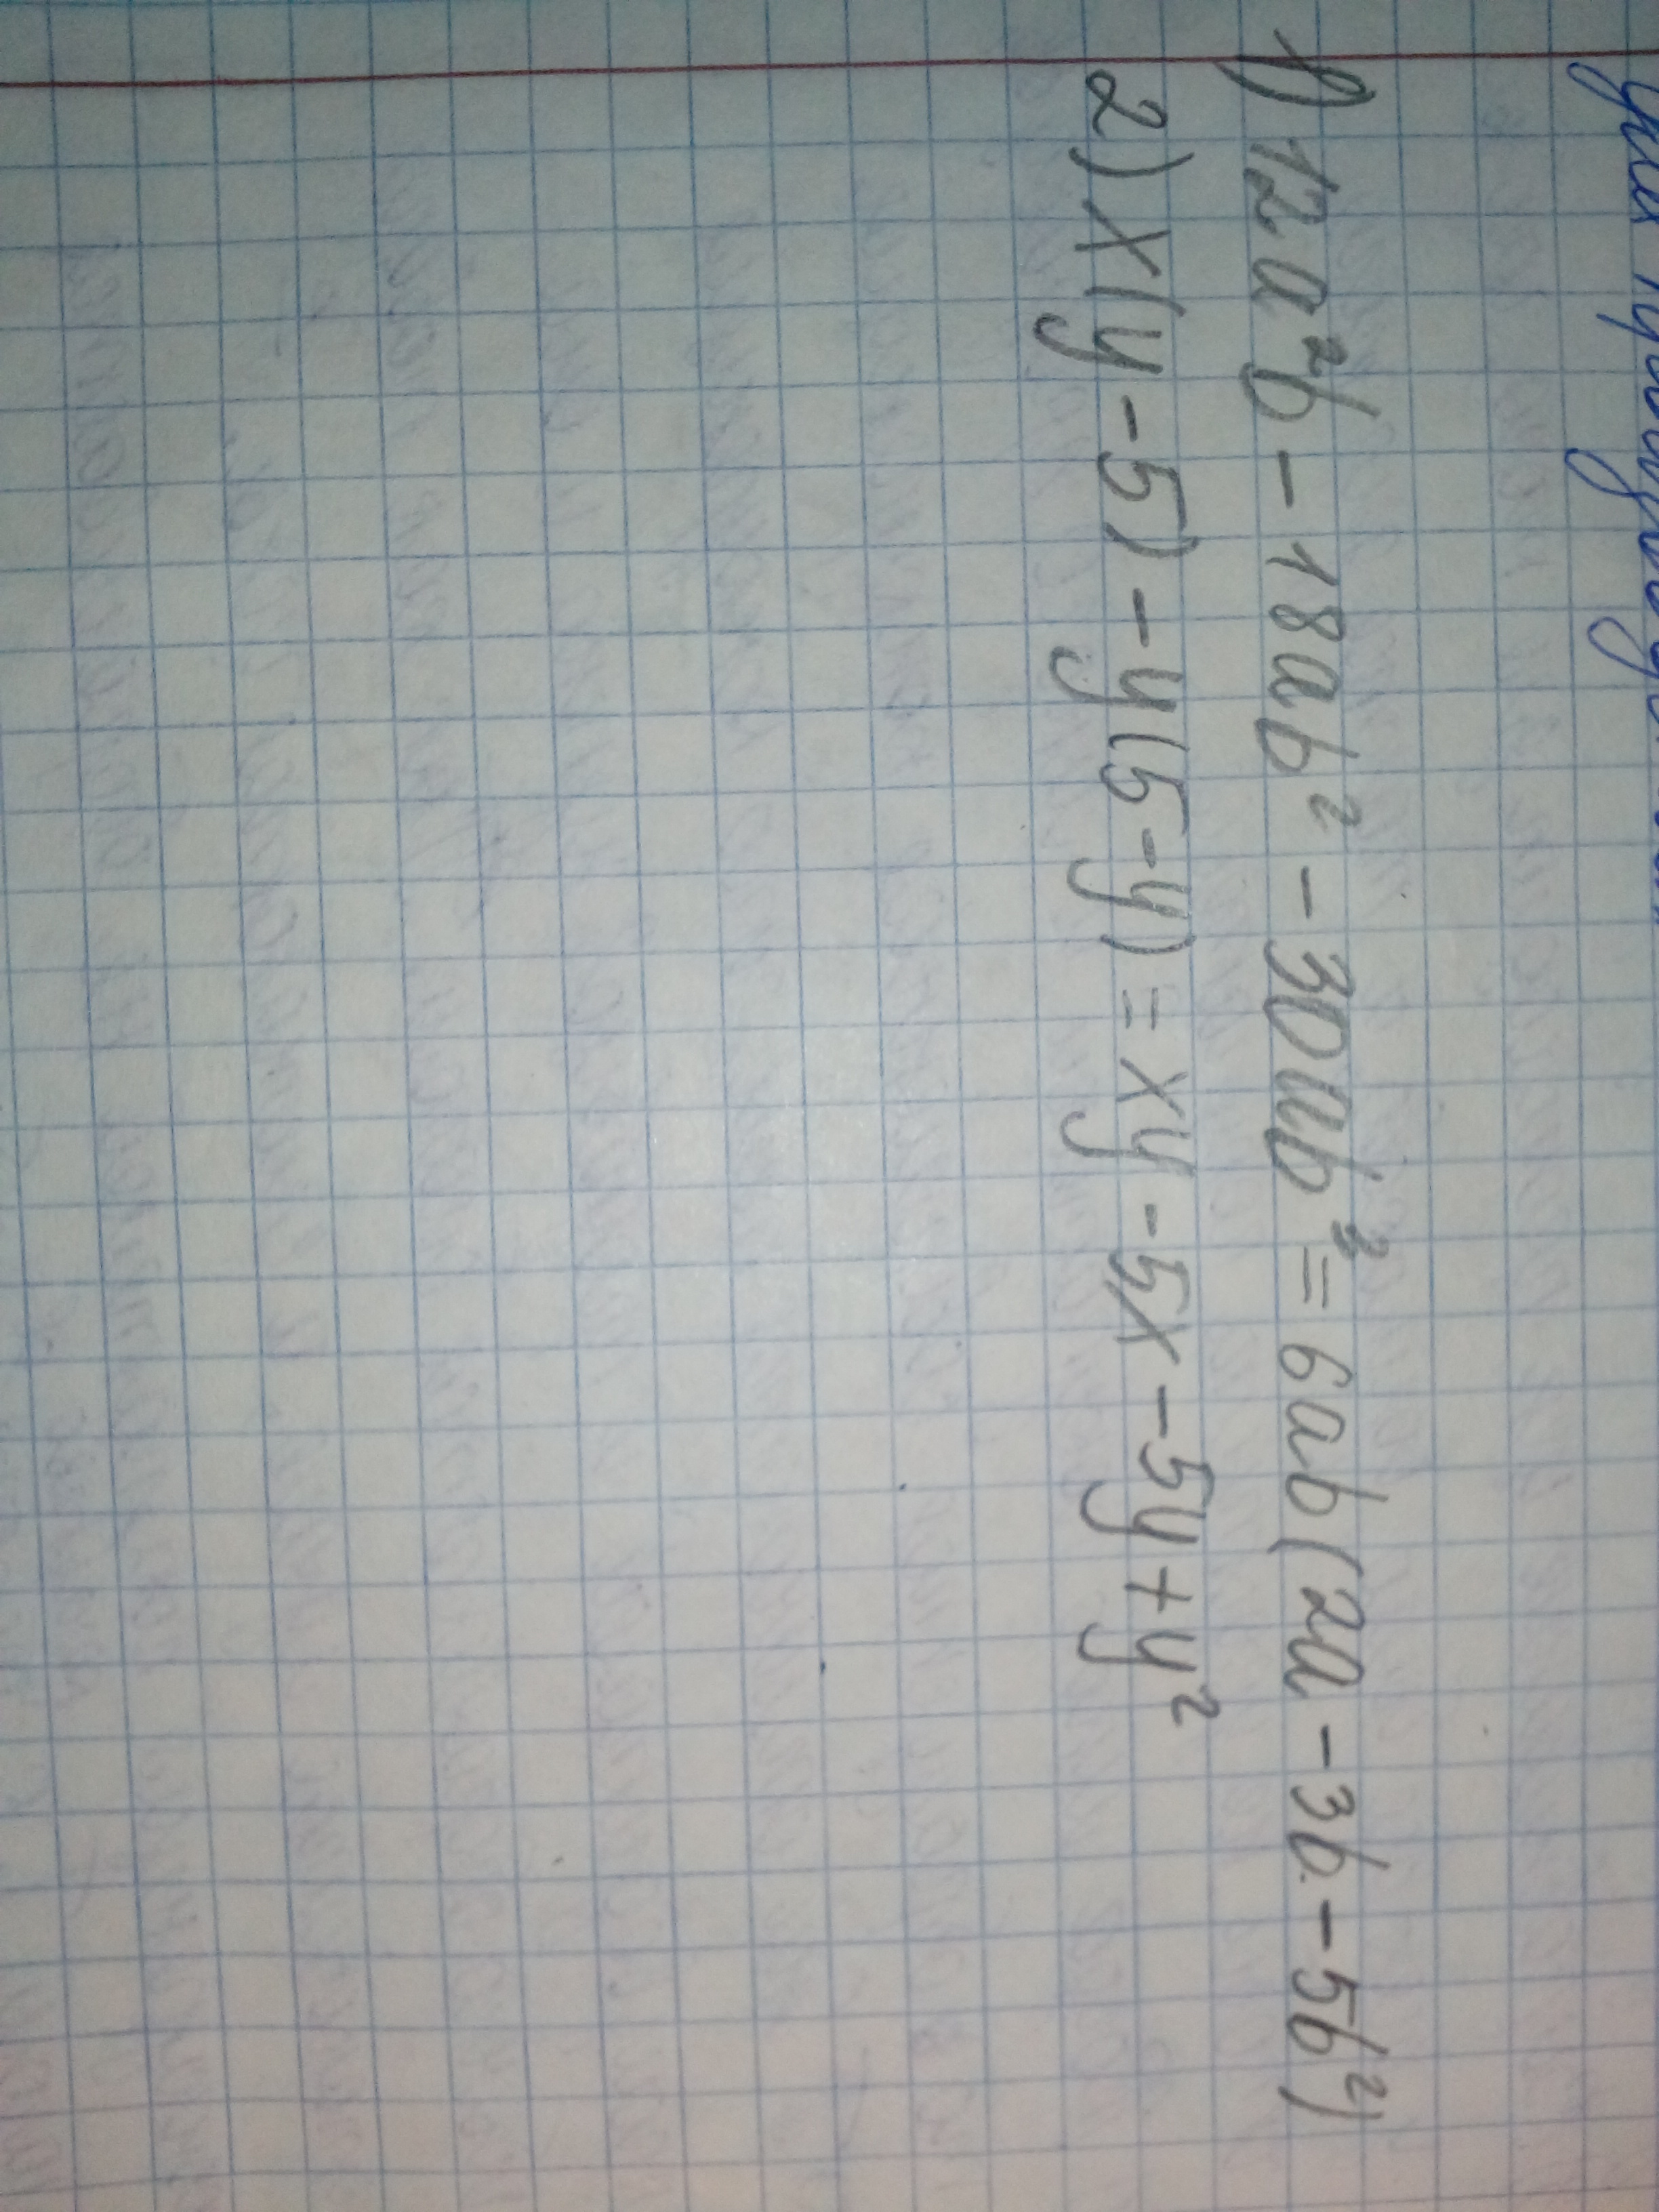 1) 12a²b - 18ab² - 30ab³ = 6ab(2a - 3b - 5b²)
2) x(y - 5) - y(5 - y) = xy - 5x - 5y + y²